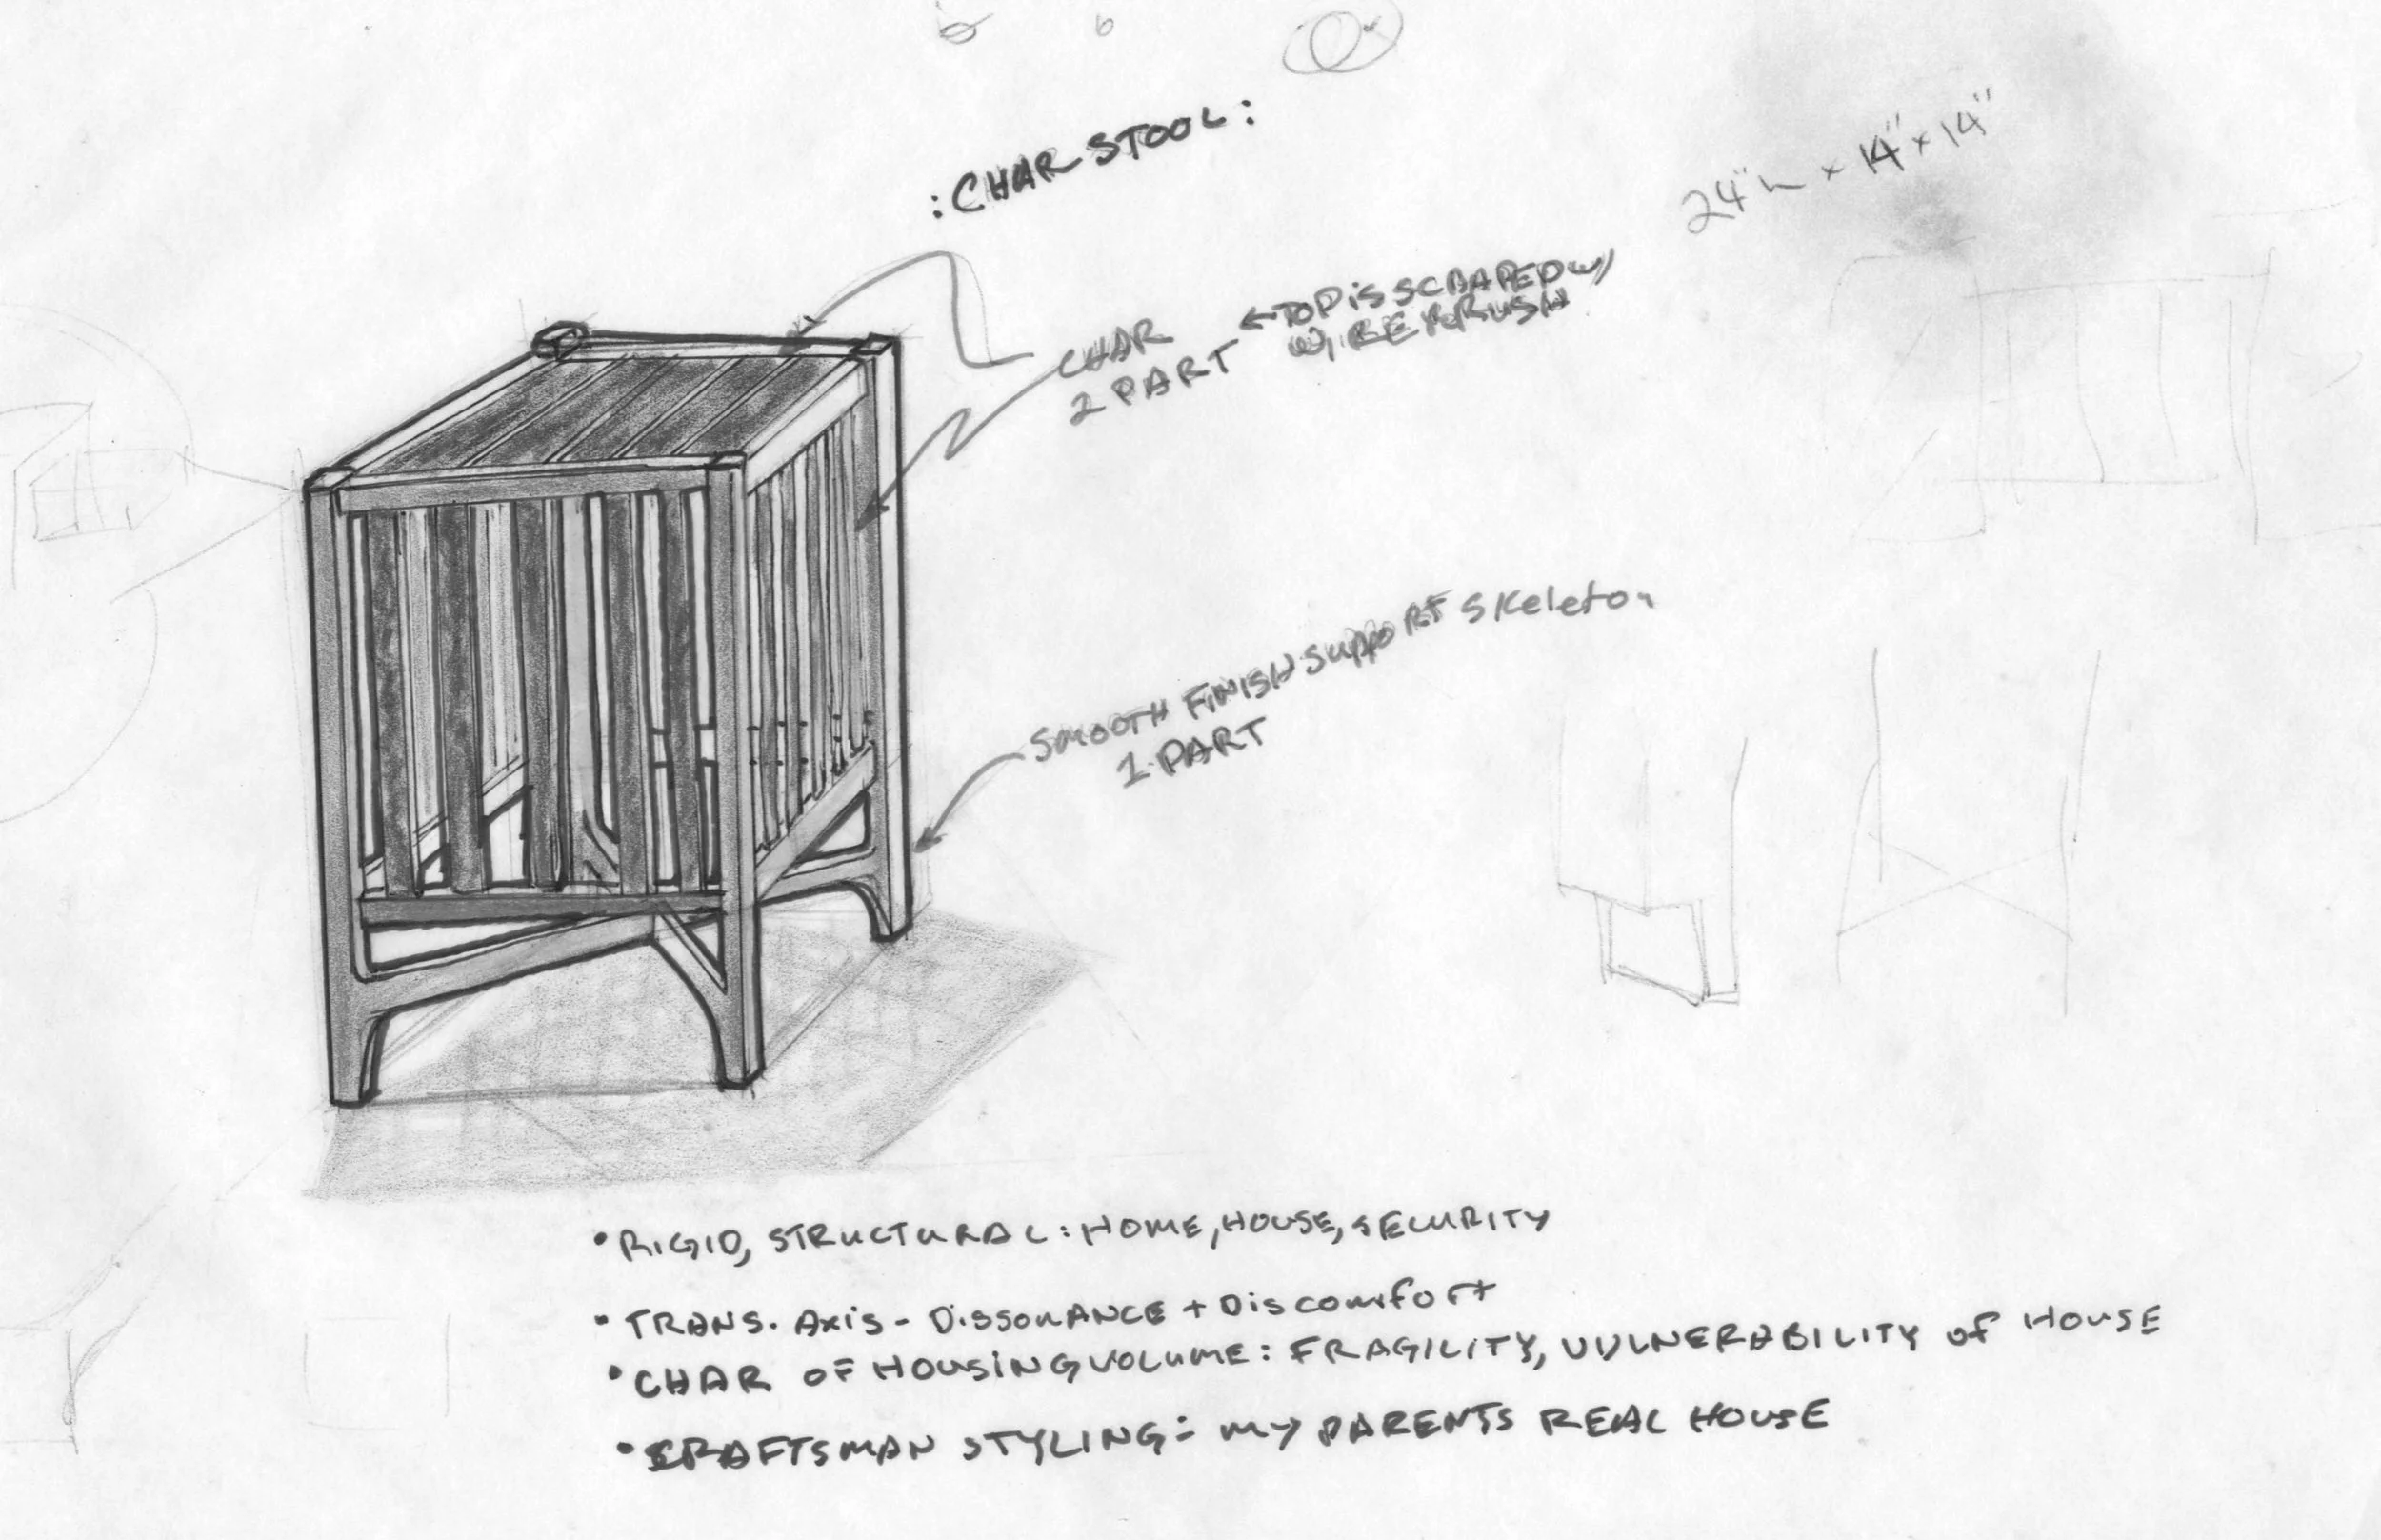 :CHAR STOOL:
24"h x 14" x 14"
CHAR
2 PART
←TOP iS SCRAPED w/
WIRE BRUSH
SMOOTH FINISH SUPPORT SKeleton
1 PART
•RIGID, STRUCTURAL: HOME, HOUSE, SECURITY
• TRANS. AXiS - DiSSONANCE + DiSCOMfoRt
•CHAR OF HOUSiNG VOLUME: FRAGILITY, VULNERABILITY of HOUSE
•CRAFTSMAN STYLING: MY PARENTS REAL HOUSE